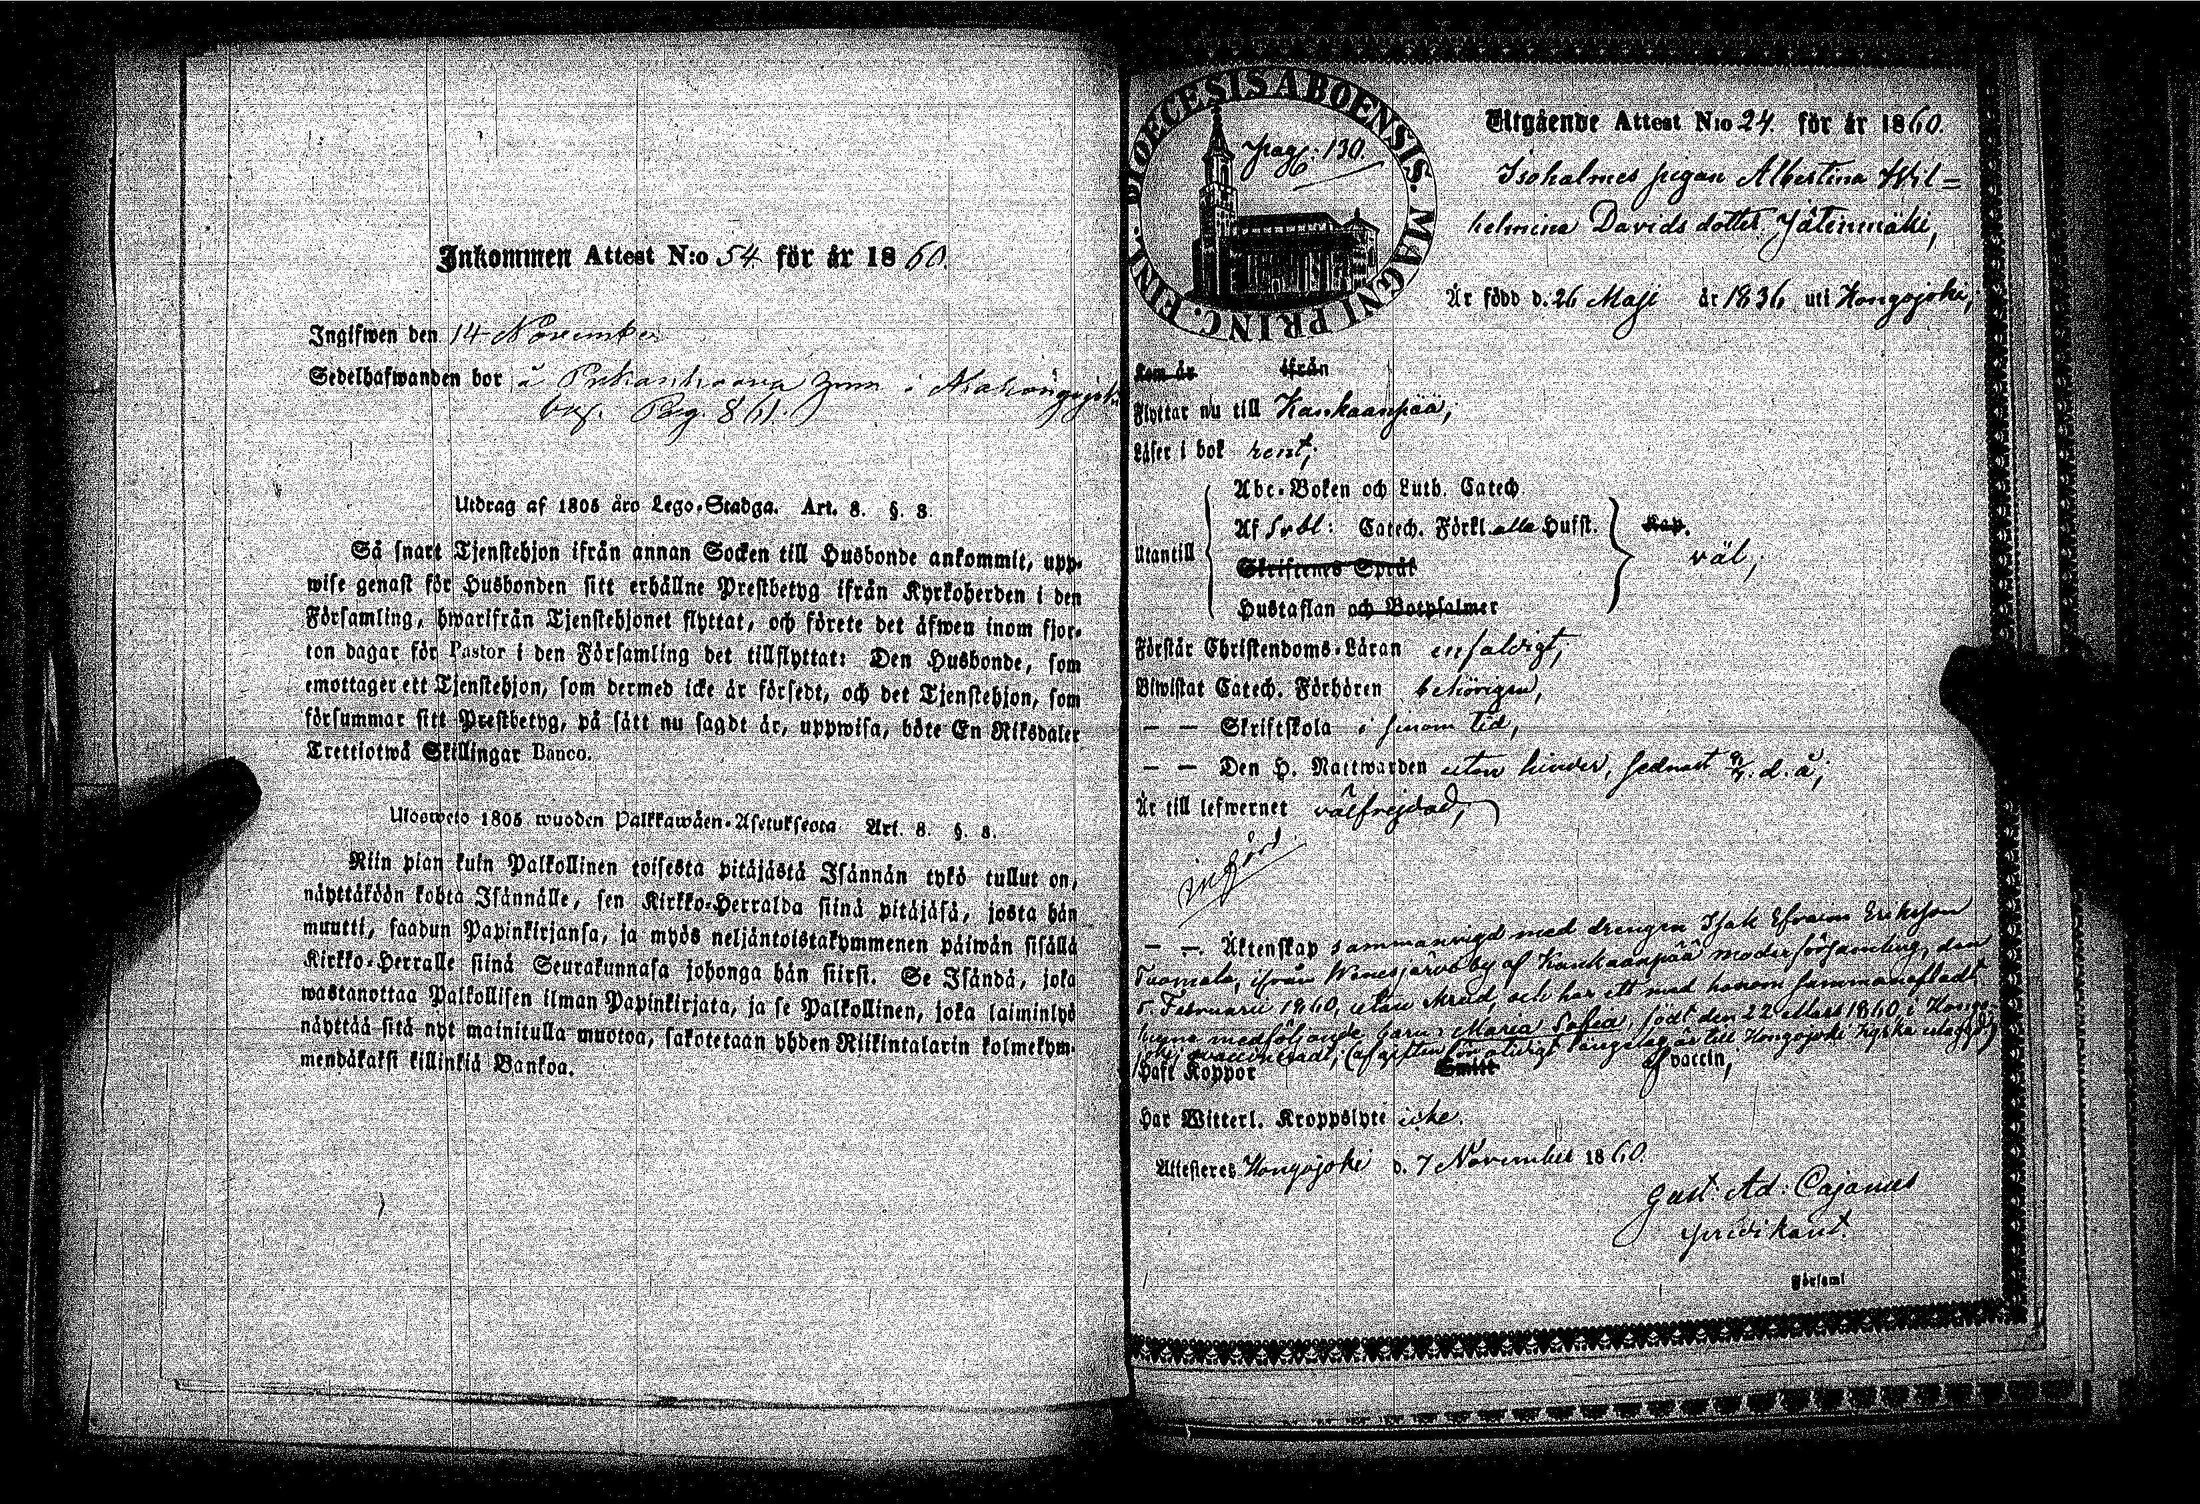 Inkommen Attest N:o 54. för år 1860.
Ingifwen den 14 November
Sedelhafwanden bor å
Pag. 861.
Utdrag af 1805 års Lego-Stadga. Art. 8. §. 8.
Så snart Tjenstehjon ifrån annan Socken till Husbonde ankommit, upp-
wise genast för Husbonden sitt erhållne Prestbetyg ifrån Kyrkoherden i den
Församling, hwarifrån Tjenstehjonet flyttat, och förete det äfwen inom fjor-
ton dagar för Pastor i den Församling det tillflyttat: Den Husbonde, som
emottager ett Tjenstehjon, som dermed icke är försedt, och det Tjenstehjon, som
försummar sitt Prestbetyg, på sätt nu sagdt är, uppwisa, böte En Riksdaler
Trettiotwå Skillingar Banco.
Ulosweto 1805 wuoden Palkkawäen-Asetuksesta Art. 8. §. 8.
Niin pian kuin Palkollinen toisesta pitäjästä Isännän tykö tullut on,
näyttäköön kohta Isännälle, sen Kirkko-Herralda siinä pitäjäsä, josta hän
muutti, saadun Papinkirjansa, ja myös neljäntoistakymmenen päiwän sisällä
Kirkko-Herralle siinä Seurakunnasa johonga hän siirsi. Se Isändä, joka
wastanottaa Palkollisen ilman Papinkirjata, ja se Palkollinen, joka laiminlyö
näyttää sitä nyt mainitulla muotoa, sakotetaan yhden Riikintalarin kolmekym-
mendäkaksi killinkiä Bankoa.
DIOECESIS ABOENSIS. MAGNI PRINC. FINL.
pag: 130.
Utgående Attest N:o 24. för år 1860.
Isoholmes pigan Albertina Wil=
helmina Davids dotter Jätinmäki,
Är född d. 26 Maji år 1836 uti Hongojoki,
kom år ifrån
Flyttar nu till Kankaanpää,
Läser i bok rent,
Abc-Boken och Luth. Catech
Utantill
Af Svbl: Catech. Förkl. alla Hufst. Kap.
väl,
Skriftenes Språk
Hustaflan och Botpsalmer
Förstår Christendoms-Läran enfaldigt,
Biwistat Catech. Förhören behörigen,
— — Skriftskola i sinom tid,
— — Den H. Nattwarden utan hinder, sednast d. å,
Är till lefwernet välfrejdad,
— — Äktenskap sammanvigd med drengen Isak Efraim Eriksson
Tuomala, ifrån Wenesjärvi by af Kankaanpää moderförsamling, den
5. Februarii 1860, utan och har ett med honom sammanafladt
medföljande barn: Maria Sofia, född den 22 Mars 1860 i Hongo-
joki, ovaccineradt, till Hongojoki kyrka
Haft Koppor Smitt af vaccin,
Har Witterl. Kroppslyte icke.
Attesteres Hongojoki d. 7 November 1860.
Gust. Ad: Cajanus
predikant.
Församl